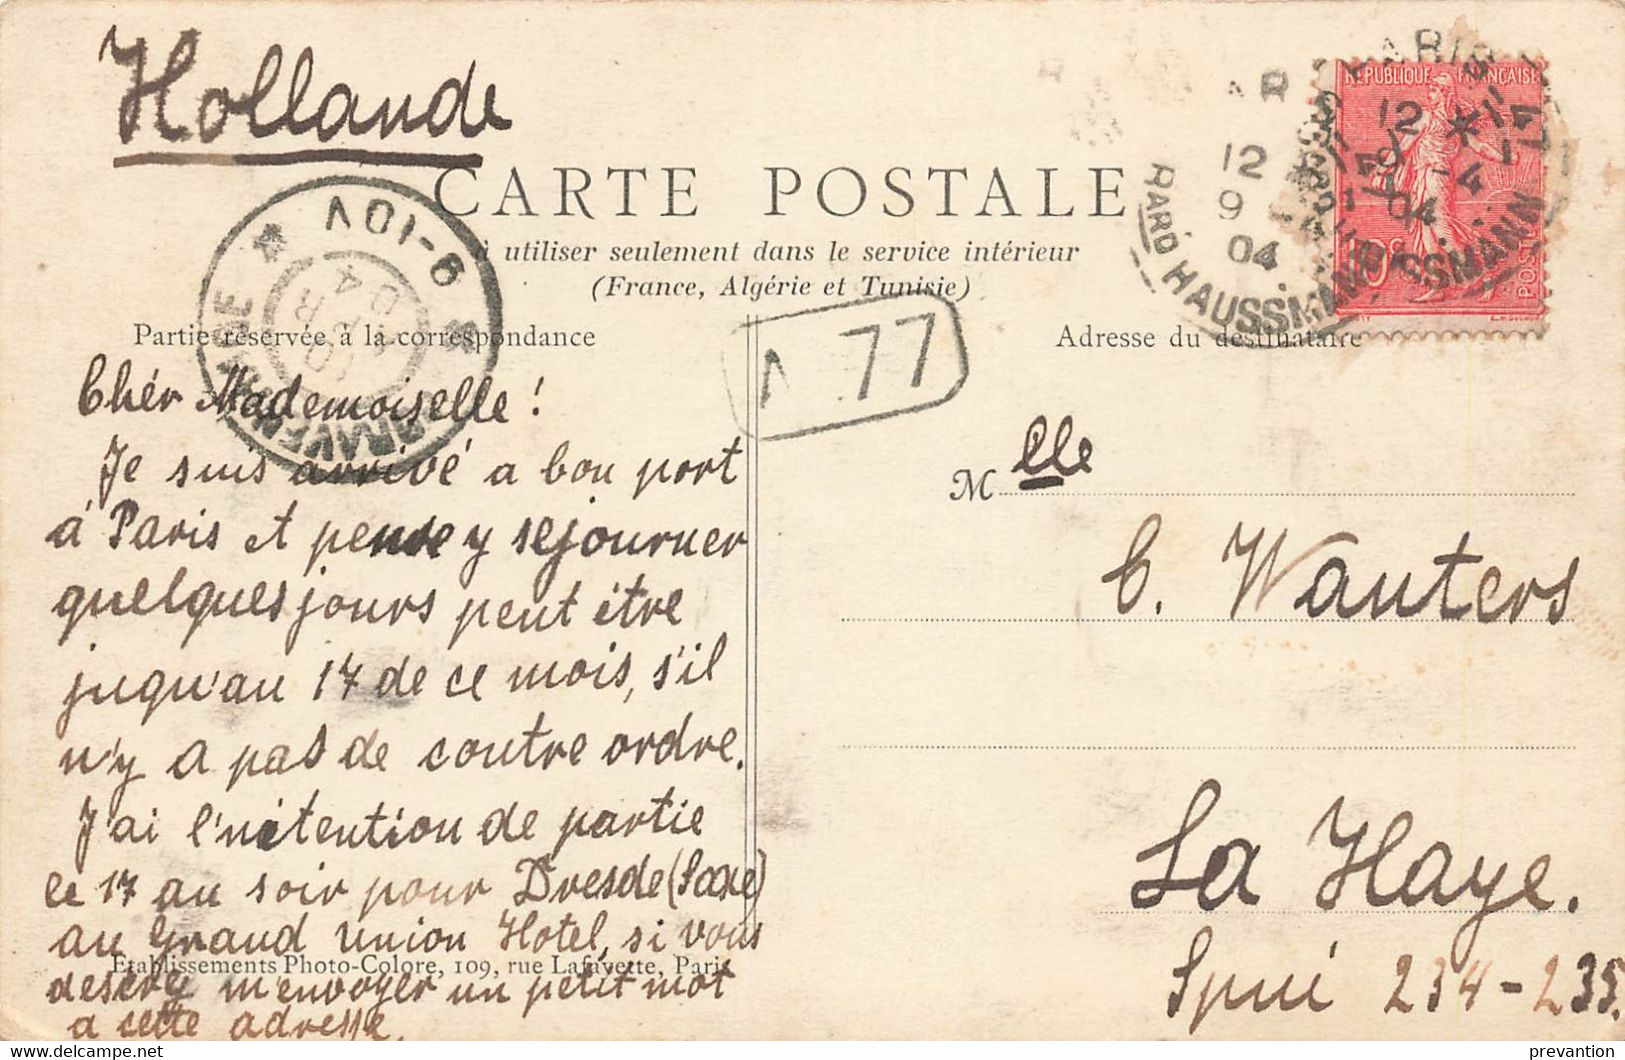 Hollande
CARTE POSTALE
à utiliser seulement dans le service intérieur
(France, Algérie et Tunisie)
Partie réservée à la correspondance
Chér Mademoiselle!
Je suis arrivé a bon port
á Paris et pense y sejourner
quelques jours peut être
jusqu'au 17 de ce mois, s'il
n'y a pas de contre ordre.
J'ai l'intention de partie
le 17 au soir pour Dresde (Saxe)
au Grand Union Hotel, si vous
desirez m'envoyer un petit mot
a cette adresse.
Etablissements Photo-Colore, 109, rue Lafayette, Paris
9-10V
GRAVENHAGE
77
Adresse du destinataire
M elle
C. Wauters
La Haye.
Spui 234-235.
REPUBLIQUE FRANÇAISE
10c
POSTES
PARIS 47
12
9 -4
04
HAUSSMANN
12
9
04
HAUSSMANN
prevantion